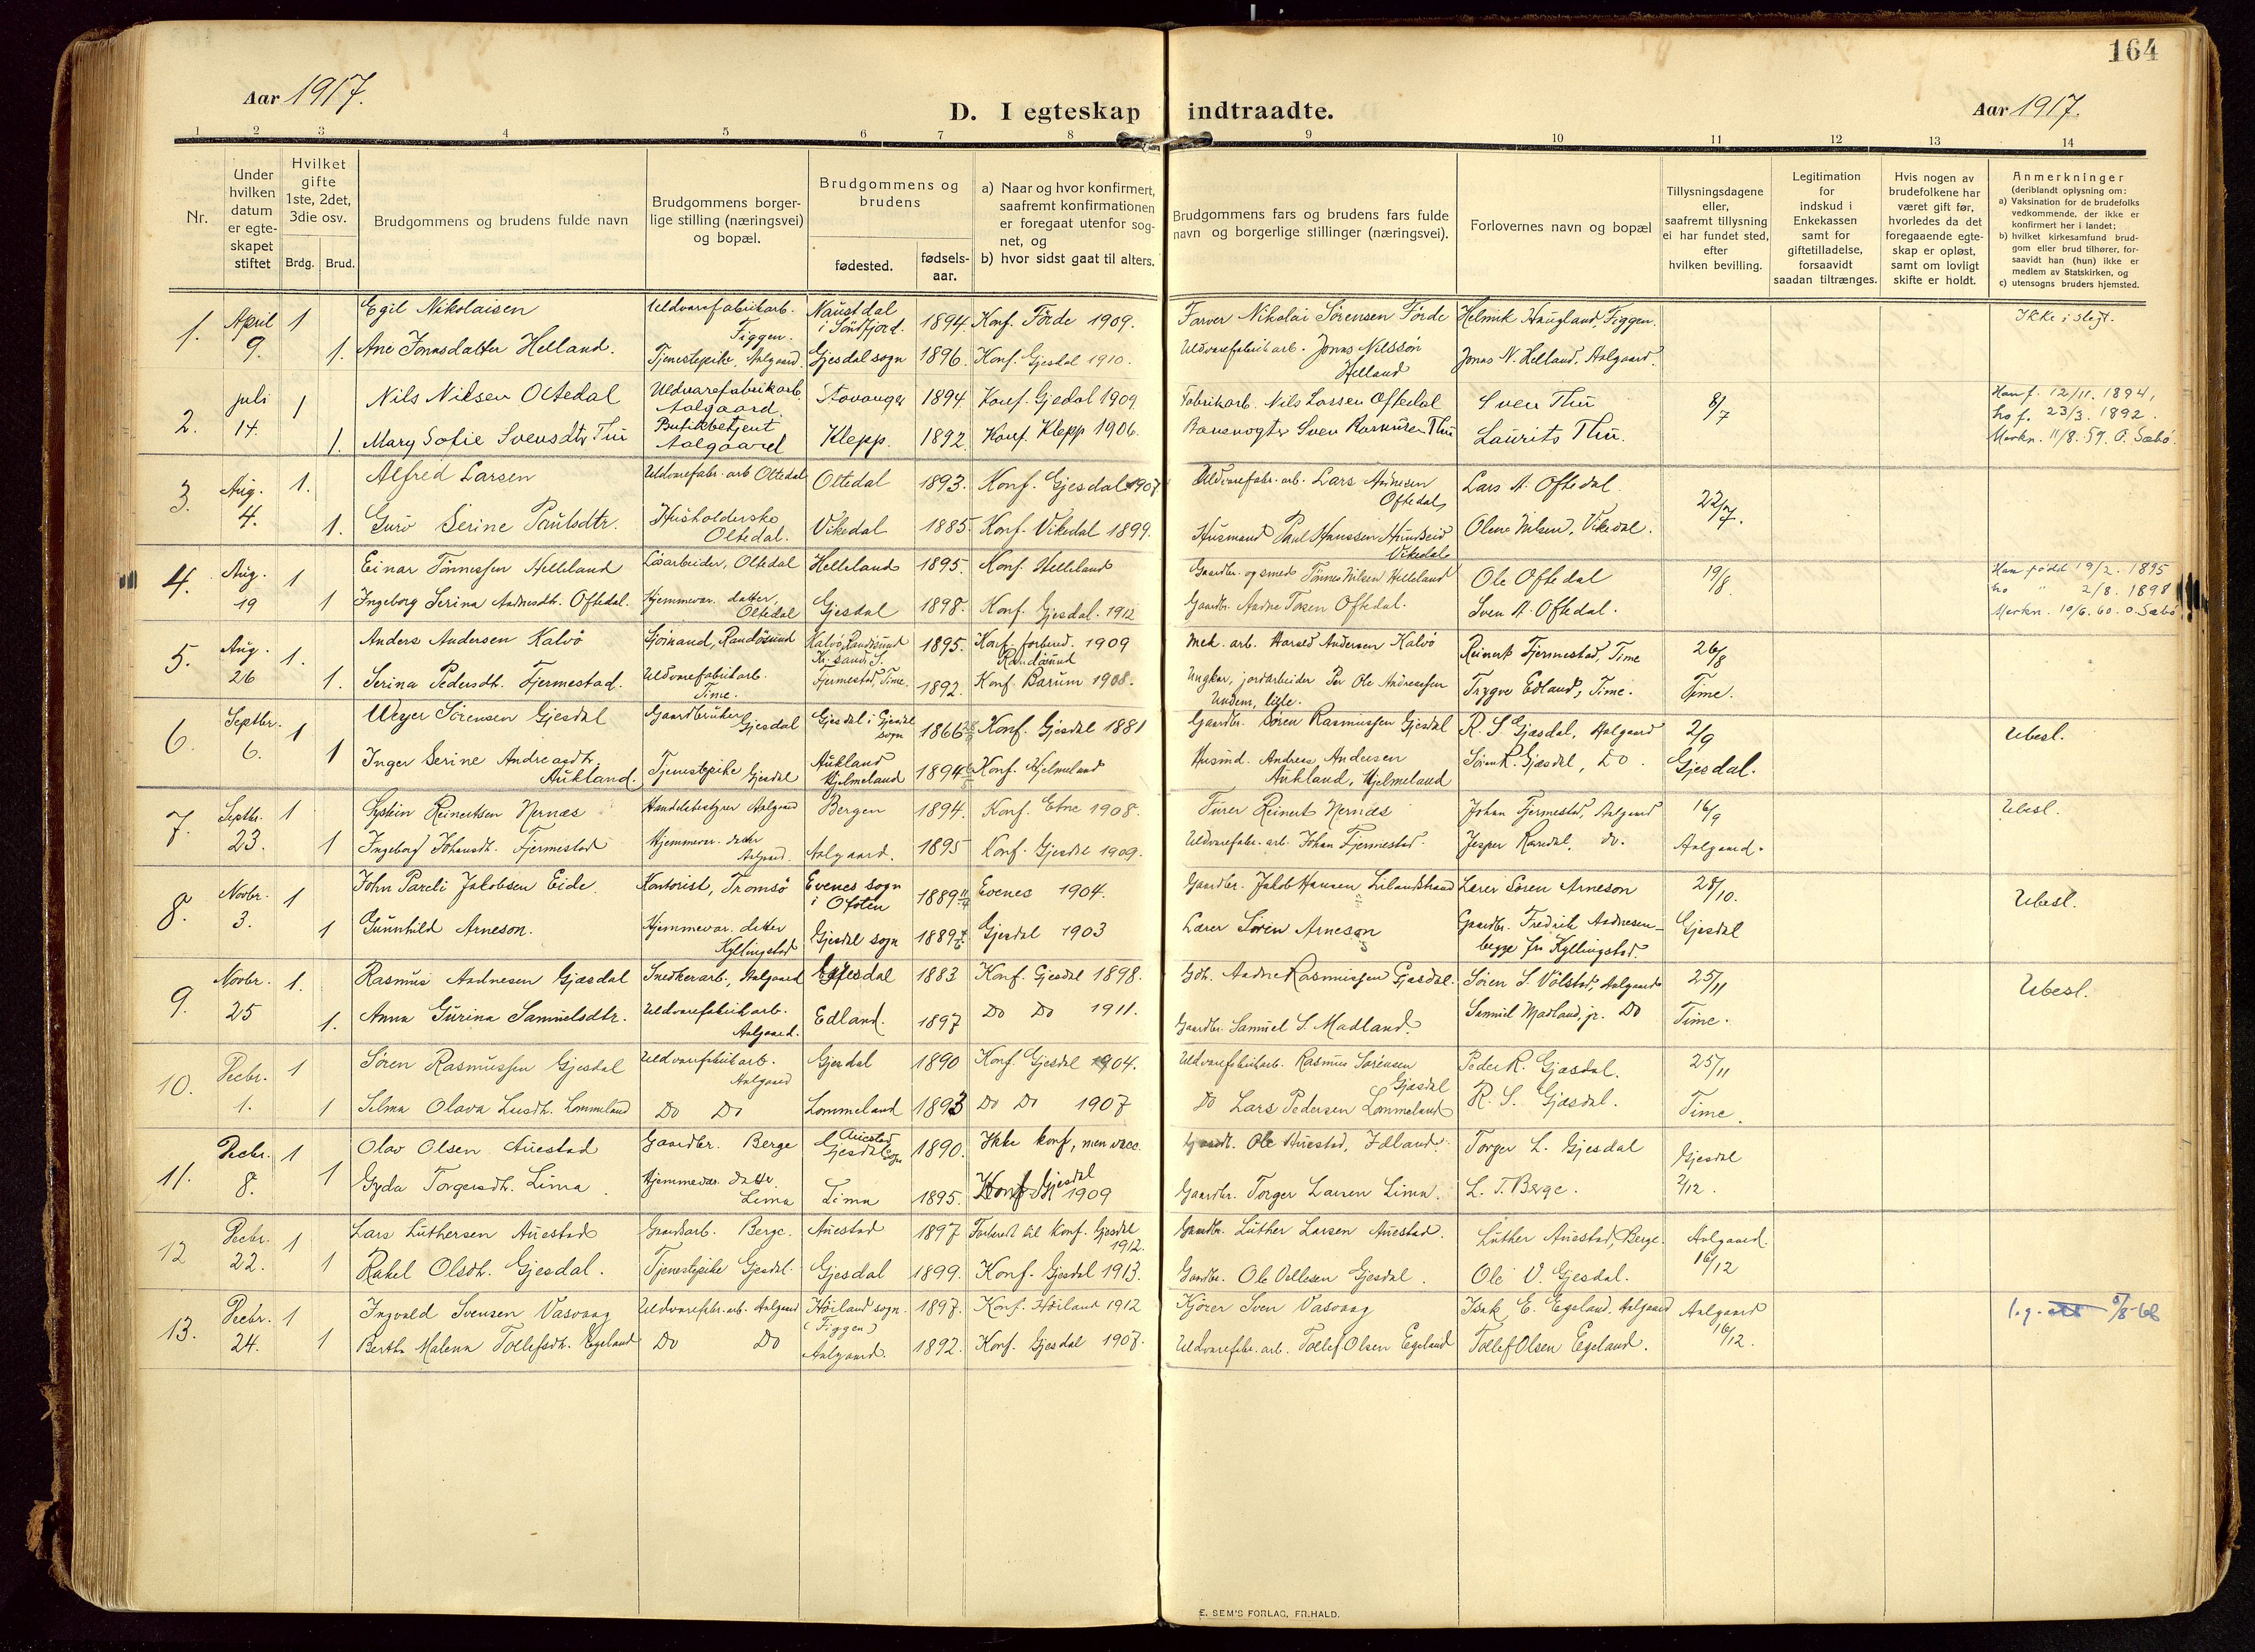 164
Aar 1917.
D. I egteskap indtraadte.
Aar 1917.
1 2 3 4 5 6 7 8 9 10 11 12 13 14
Nr.
Under hvilken datum er egte-skapet stiftet
Hvilket gifte 1ste, 2det, 3die osv.
Brdg. Brud.
Brudgommens og brudens fulde navn
Brudgommens borger-lige stilling (næringsvei) og bopæl.
Brudgommens og brudens
fødested.
fødsels-aar.
a) Naar og hvor konfirmert, saafremt konfirmationen er foregaat utenfor sog-net, og
b) hvor sidst gaat til alters.
Brudgommens fars og brudens fars fulde navn og borgerlige stillinger (næringsvei).
Forlovernes navn og bopæl
Tillysningsdagene eller, saafremt tillysning ei har fundet sted, efter hvilken bevilling.
Legitimation for indskud i Enkekassen samt for giftetilladelse, forsaavidt saadan tiltrænges.
Hvis nogen av brudefolkene har været gift før, hvorledes da det foregaaende egte-skap er opløst, samt om lovligt skifte er holdt.
Anmerkninger
(deriblandt oplysning om:
a) Vaksination for de brudefolks vedkommende, der ikke er konfirmert her i landet;
b) hvilket kirkesamfund brud-gom eller brud tilhører, for-saavidt han (hun) ikke er medlem av Statskirken, og
c) utensogns bruders hjemsted.
1. April 9. 1 Egil Nikolaisen Uldvarefabrikarb. Figgen. Naustdal i Söndfjord. 1894 Konf. Förde 1909. Farver Nikolai Sörensen Förde Helmik Haugland, Figgen. Ikke i slegt.
1. Ane Jonasdatter Helland. Tjenestepike, Aalgaard. Gjesdal sogn 1896. Konf. Gjesdal 1910. Uldvarefabrikarb. Jonas Nilssön Helland Jonas N. Helland, Aalgaard.
2. juli 14. 1 Nils Nilsen Oltedal Uldvarefabrikarb. Aalgaard. Stavanger 1894. Konf. Gjedal 1909 Fabrikarb. Nils Larsen Oftedal Sven Thu 8/7 Han f. 12/11. 1894,
1. Mary Sofie Svensdtr Thu Butikbetjent Aalgaard Klepp. 1892. Konf. Klepp 1906. Banevogter Sven Rasmusen Thu Laurits Thu. ho f. 23/3. 1892.
Merkn. 11/8. 59. O. Sæbö.
3. Aug. 4. 1. Alfred Larsen Uldvarefabr. arb Oltedal Oltedal 1893. Konf. Gjesdal 1907 Uldvarefabr. arb. Lars Aanesen Oftedal, Lars A. Oftedal. 22/7.
1. Guro Serine Paulsdtr. Husholderske Oltedal. Vikedal 1885. Konf. Vikedal 1899. Husmand Paul Hanssen Hundseid Vikedal Nilsen, Vikedal.
4. Aug. 19 1 Einar Tönnessen Helleland Lösarbeider, Oltedal Helleland 1895. Konf. Helleland Gaardbr. og smed Tönnes Nilsen Helleland Ole Oftedal 19/8. Han födt 19/2. 1895
1 Ingeborg Serina Aadnesdtr. Oftedal. Hjemmevar. datter, Oltedal Gjesdal 1898. Konf. Gjesdal. 1912 Gaardbr. Aadne Tosen Oftedal. Sven A. Oftedal. ho " 2/8. 1898
Merkn. 10/6. 60. O. Sæbö
5. Aug. 26 1. Anders Andersen Kalvö Sjömand, Randösund Kalvö, Randösund Kr.sand S. 1895. Konf. forbered. 1909 Randösund Mek. arb. Harald Andersen Kalvö Reinert Fjermestad, Time 26/8
1. Serina Pedersdtr. Fjermestad. Uldvarefabrikarb. Time. Fjermestad, Time. 1892. Konf. Bærum 1908. Ungkar, jordarbeider Per Ole Andreassen Undem, Trygve Edland, Time. Time.
6. Septbr. 6. 1 Weyer Sörensen Gjesdal Gaardbruker Gjesdal Gjesdal i Gjesdal sogn 1866 Konf. Gjesdal 1881 Gaardbr. Sören Rasmussen Gjesdal R. S Gjæsdal, Aalgaard 2/9 Ubesl.
1 Inger Serine Andreasdtr. Aukland. Tjenestepike Gjesdal Aukland Hjelmeland 1894 Konf. Hjelmeland Husmd. Andreas Andersen Aukland, Hjelmeland Sören R. Gjæsdal, Do. Gjesdal.
7. Septbr. 23. 1 Eystein Reinertsen Nernæs Handelsbestyrer Aalgaard Bergen 1894. Konf. Etne 1908. Furer Reinert Nernæs Johan Fjermestad, Aalgaard 16/9 Ubesl.
1 Ingeborg Johansdtr. Fjermestad Hjemmevær. datter Aalgaard. Aalgaard. 1895 Konf. Gjesdal 1909. Uldvarefabr. arb. Johan Fjermestad. Jesper Do. Aalgaard.
8. Novbr. 3. 1 John Pareli Jakobsen Eide. Kontorist, Tromsö Evenes sogn i Ofoten 1889 Evenes 1904. Gaardbr. Jakob Hansen Lilandstrand Lærer Sören Arneson 28/10. Ubesl.
1 Gunnhild Arneson. Hjemmevær. datter Kyllingstad Gjesdal sogn 1889 Gjesdal 1903 Lærer Sören Arneson Gaardbr. Fredrik Aadnesen begge fra Kyllingstad. Gjesdal
9. Novbr. 25 1. Rasmus Aadnesen Gjæsdal Snedkerarb., Aalgaard Gjesdal 1883 Konf. Gjesdal 1898. Gdb. Aadne Rasmussen Gjæsdal. Sören S. Völstad, Aalgaard 25/11 Ubesl.
1. Anna Gurina Samuelsdtr. Uldvarefabrikarb. Aalgaard. Edland. 1897 Do Do 1911. Gaardbr. Samuel S. Madland. Samuel Madland, jr. Do Time.
10. Decbr. 1. 1 Sören Rasmussen Gjesdal Uldvarefabrikarb. Aalgaard Gjesdal 1890 Konf. Gjesdal 1904. Uldvarefabrikarb. Rasmus Sörensen Gjæsdal Peder R. Gjæsdal. 25/11
1 Selma Olava Larsdtr. Lommeland Do Do Lommeland 1893 Do Do 1907 Do Lars Pedersen Lommeland R. S. Gjæsdal. Time.
11. Decbr. 8. 1 Olav Olsen Auestad Gaardbr. Berge Auestad Gjesdal sogn 1890. Ikke konf, men vacc. Gaardb. Ole Auestad, Torger L. Gjesdal Gjesdal
1 Gyda Torgersdtr. Lima. Hjemmevær. datter. Lima Lima 1895. Konf. Gjesdal 1909 Gaardbr. Torger Larsen Lima. L. T. Berge. 2/12.
12 Decbr. 22. 1 Lars Luthersen Auestad Gaardsarb. Berge. Auestad 1897 Forberedt til Konf. Gjesdal 1912. Gaardbr. Luther Larsen Auestad. Luther Auestad, Berge. Aalgaard.
1 Rakel Olsdtr. Gjesdal. Tjenestepike Gjesdal. Gjesdal 1899. Konf. Gjesdal 1913. Gaardbr. Ole Gjesdal. Ole V. Gjesdal. 16/12
13. Decbr. 24. 1 Ingvald Svensen Vasvaag Uldvarefabr. arb. Aalgaard Höiland sogn. (Figgen) 1897. Konf. Höiland 1912 Kjörer Sven Vasvaag Isak E. Egeland. Aalgaard Aalgaard 5/8-68
1 Bertha Malena Tollefsdtr. Egeland Do Do Aalgaard. 1892. Konf. Gjesdal 1907. Uldvarefabr. arb. Tollef Olsen Egeland Tollef Olsen Egeland. 16/12.
E. SEM'S FORLAG, FR.HALD.